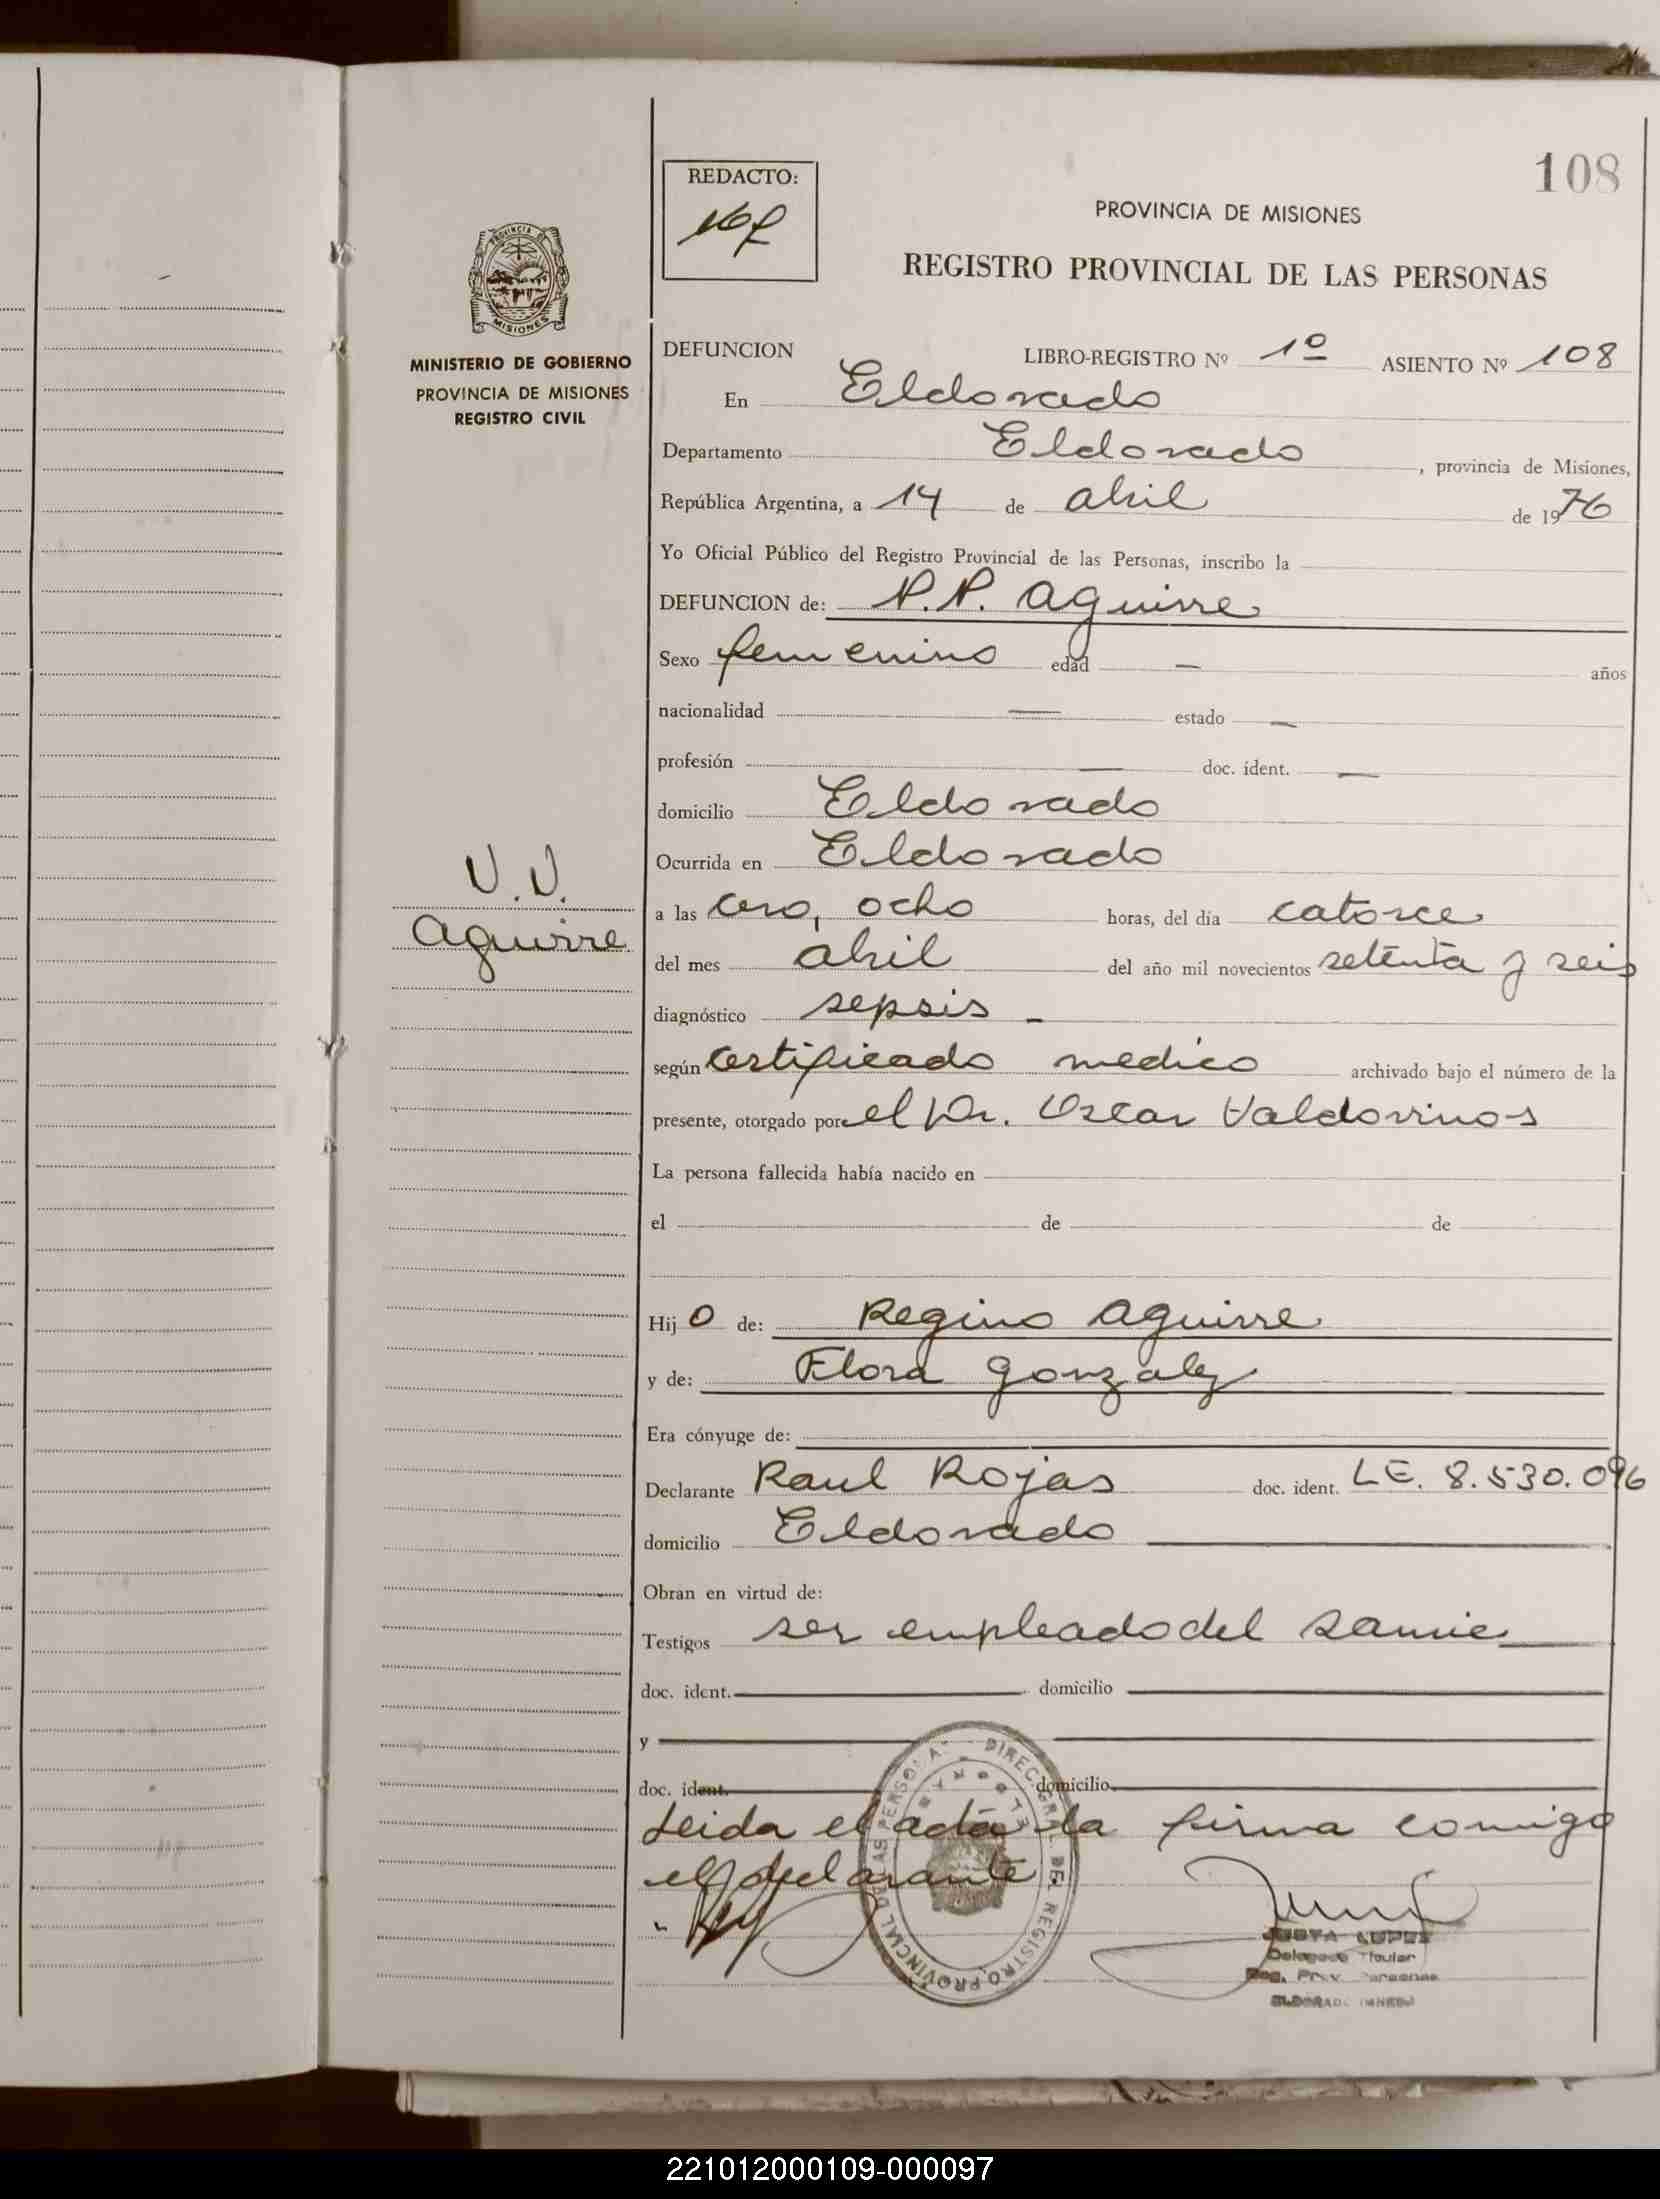 108
REDACTO:
PROVINCIA DE MISIONES
REGISTRO PROVINCIAL DE LAS PERSONAS
PROVINCIA DE
MISIONES
MINISTERIO DE GOBIERNO
PROVINCIA DE MISIONES
REGISTRO CIVIL
DEFUNCION LIBRO-REGISTRO Nº 1º ASIENTO Nº 108
En Eldorado
Departamento Eldorado , provincia de Misiones,
República Argentina, a 14 de abril de 1976
Yo Oficial Público del Registro Provincial de las Personas, inscribo la
DEFUNCION de: N.N. Aguirre
Sexo femenino edad — años
nacionalidad — estado —
profesión — doc. ident. —
domicilio Eldorado
Ocurrida en Eldorado
N.N.
Aguirre
a las cero, ocho horas, del día catorce
del mes abril del año mil novecientos setenta y seis
diagnóstico sepsis -
según certificado medico archivado bajo el número de la
presente, otorgado por el Dr. Oscar Valdovinos
La persona fallecida había nacido en
el de de
Hijo de: Regino Aguirre
y de: Flora Gonzalez
Era cónyuge de:
Declarante Raul Rojas doc. ident. LE. 8.530.096
domicilio Eldorado
Obran en virtud de:
Testigos ser empleado del Samic
doc. ident. domicilio
y
doc. ident. domicilio
Leida el acta la firma comigo
el declarante
DIREC. GRAL. DEL REGISTRO PROVINCIAL DE LAS PERSONAS
LOPEZ
Delegado Titular
Reg. Prov. Personas
ELDORADO (MNES)
221012000109-000097